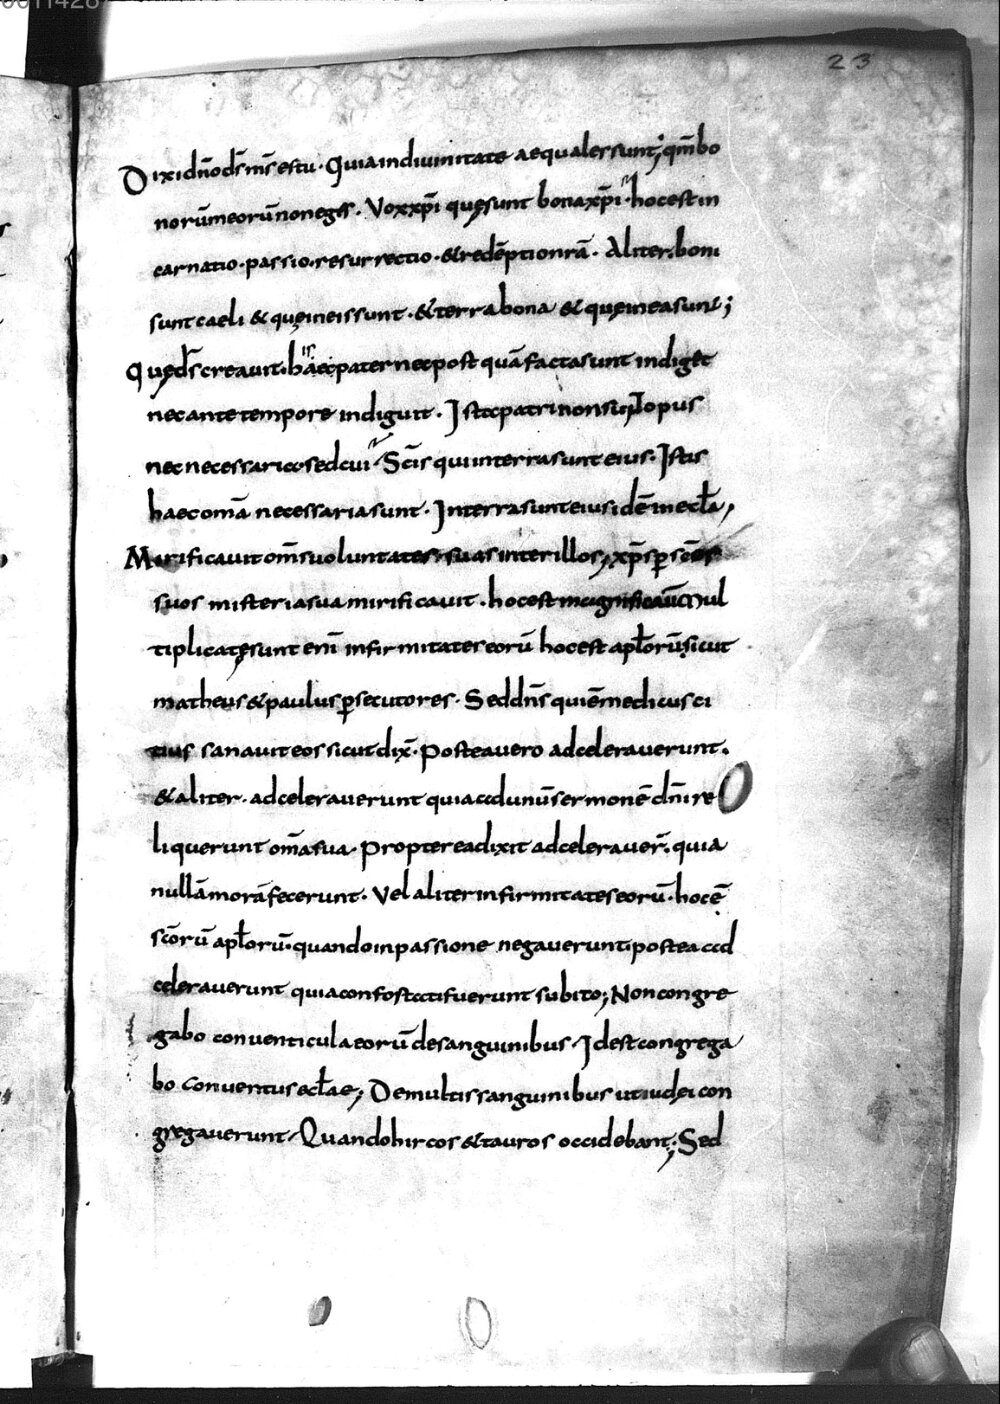 0011428
23
Dixi dn̄o ds̄ ms̄ es tu · Quia in diuinitate aequales sunt; qm̄ bo
norum̄ meorū non eges · Vox xp̄i quę sunt bona xp̄i · hoc est in
carnatio · passio · resurrectio · & redēptio nr̄a · Aliter · boni
sunt caeli & quę in eis sunt · & terra bona & quę in ea sunt;
Quę ds̄ creauit · his haec pater nec post quā facta sunt indiget
nec ante tempore indiguit · Ista patri non sunt opus
nec necessario sed cui · Sc̄is qui in terra sunt eius · Istis
haec om̄a necessaria sunt · In terra sunt eius idē in eccla;
Mirificauit om̄s uoluntates suas inter illos; xp̄s ꝑ sc̄os
suos misteria sua mirificauit · hoc est magnificauit Mul
tiplicatę sunt enī infirmitates eorū hoc est aplorū sicut
matheus & paulus ꝑsecutores · Sed dn̄s qui ē medicus ci
tius sanauit eos sicut dix̄ · Postea uero adcelerauerunt ·
& aliter · adcelerauerunt quia ad unū sermonē dn̄i re
liquerunt om̄a sua · Propterea dixit adcelerauer̄ · quia
nullā morā fecerunt · Vel aliter infirmitates eorū · hoc ē
sc̄orū aplorū · quando in passione negauerunt postea ad
celerauerunt quia confortati fuerunt subito; Non congre
gabo conuenticula eorū de sanguinibus · Id est congrega
bo conuentus ecclae; De multis sanguinibus ut iudei con
gregauerunt · Quando hircos & tauros occidebant; Sed